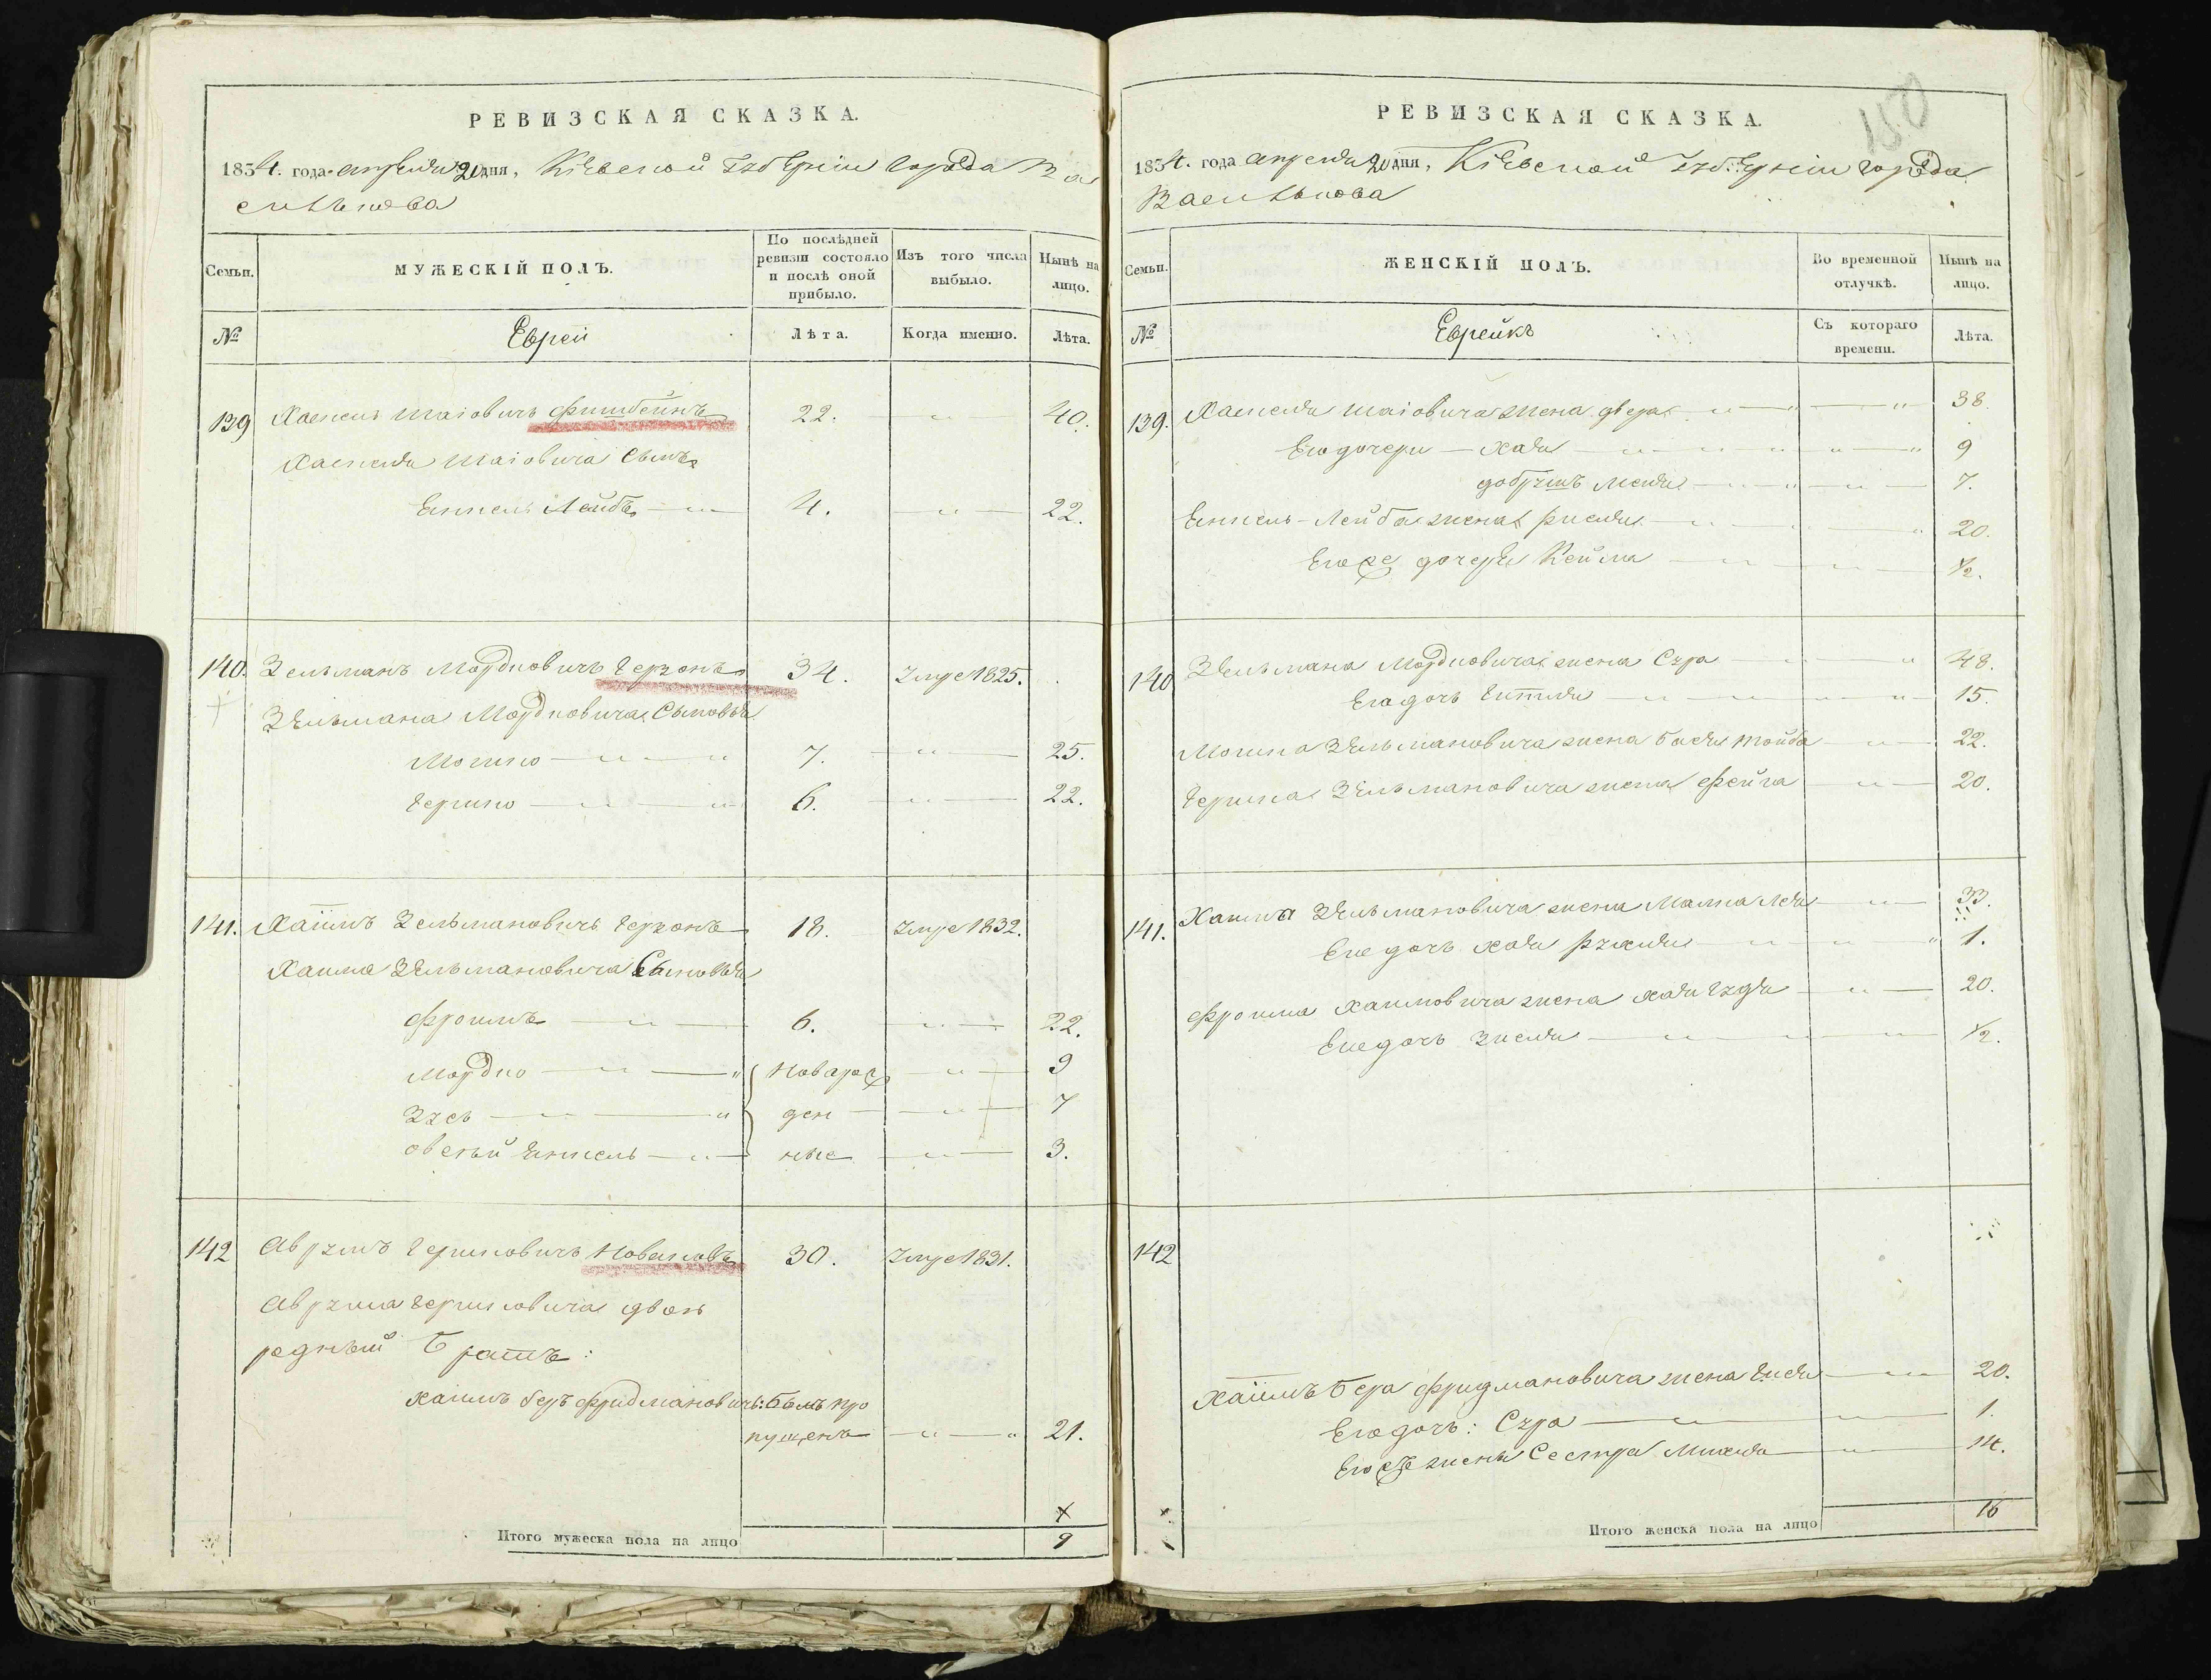 РЕВИЗСКАЯ СКАЗКА.
1834. года апреля 20 дня, Кіевской Губерніи города Ва
силькова
Семьи.
МУЖЕСКІЙ ПОЛЪ.
По послѣдней ревизіи состояло и послѣ оной прибыло.
Изъ того числа выбыло.
Нынѣ на лицо.
№
Евреи
Лѣта.
Когда именно.
Лѣта.
139 Хаскель Шаіовичъ Фишбейнъ 22. 40.
Хаскеля Шаіовича Сынъ
Янкель Лейбъ 4. 22.
140. Зельманъ Мордковичъ Герзонъ 34. Умре 1825.
Зельмана Мордковича Сыновья
Мошко 7. 25.
Гершко 6. 22.
141. Хаимъ Зельмановичъ Герзонъ 18. Умре 1832.
Хаима Зельмановича Сыновья
Фроимъ 6. 22.
Мордко новорож 9
Зусь ден 7
Овсей Янкель ные 3.
142 Аврумъ Гершковичъ 30. Умре 1831.
Аврума Гершковича двою
родный Братъ:
Хаимъ Беръ Фридмановичъ: Былъ про
пущенъ 21.
Итого мужеска пола на лицо 9
150
РЕВИЗСКАЯ СКАЗКА.
1834. года апреля 20 дня, Кіевской Губерніи города
Василькова
Семьи.
ЖЕНСКІЙ ПОЛЪ.
Во временной отлучкѣ.
Нынѣ на лицо.
№
Еврейкъ
Съ котораго времени.
Лѣта.
139. Хаскеля Шаіовича жена Двера 38.
Его дочери Хая 9
Добрушъ 7.
Янкель-Лейба жена Рисля 20.
Его же дочерь Кейла 1/2.
140 Зельмана Мордковича жена Сура 48.
Его дочь Гитля 15.
Мошка Зельмановича жена Бася Тойба 22.
Гершка Зельмановича жена Фейга 20.
141. Хаима Зельмановича жена Малка Лея 33.
Его дочь Хая Рухля 1.
Фроима Хаимовича жена Хая 20.
Его дочь Зисля 1/2.
142
Хаимъ Бера Фридмановича жена 20.
Его дочь: Сура 1.
Его же жены Сестра 14.
Итого женска пола на лицо 16